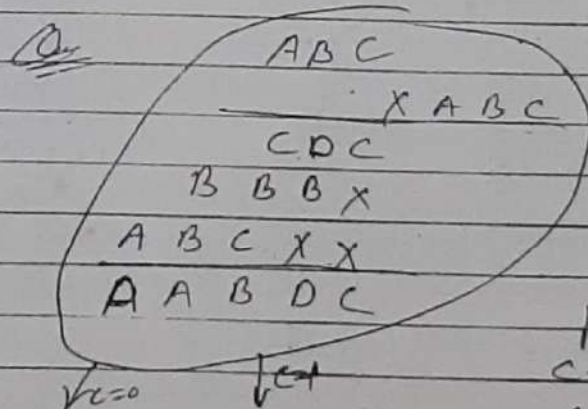 Q.
ABC
X A B C
C D C
B B B X
A B C X X
A A B D C
c=0 c=1